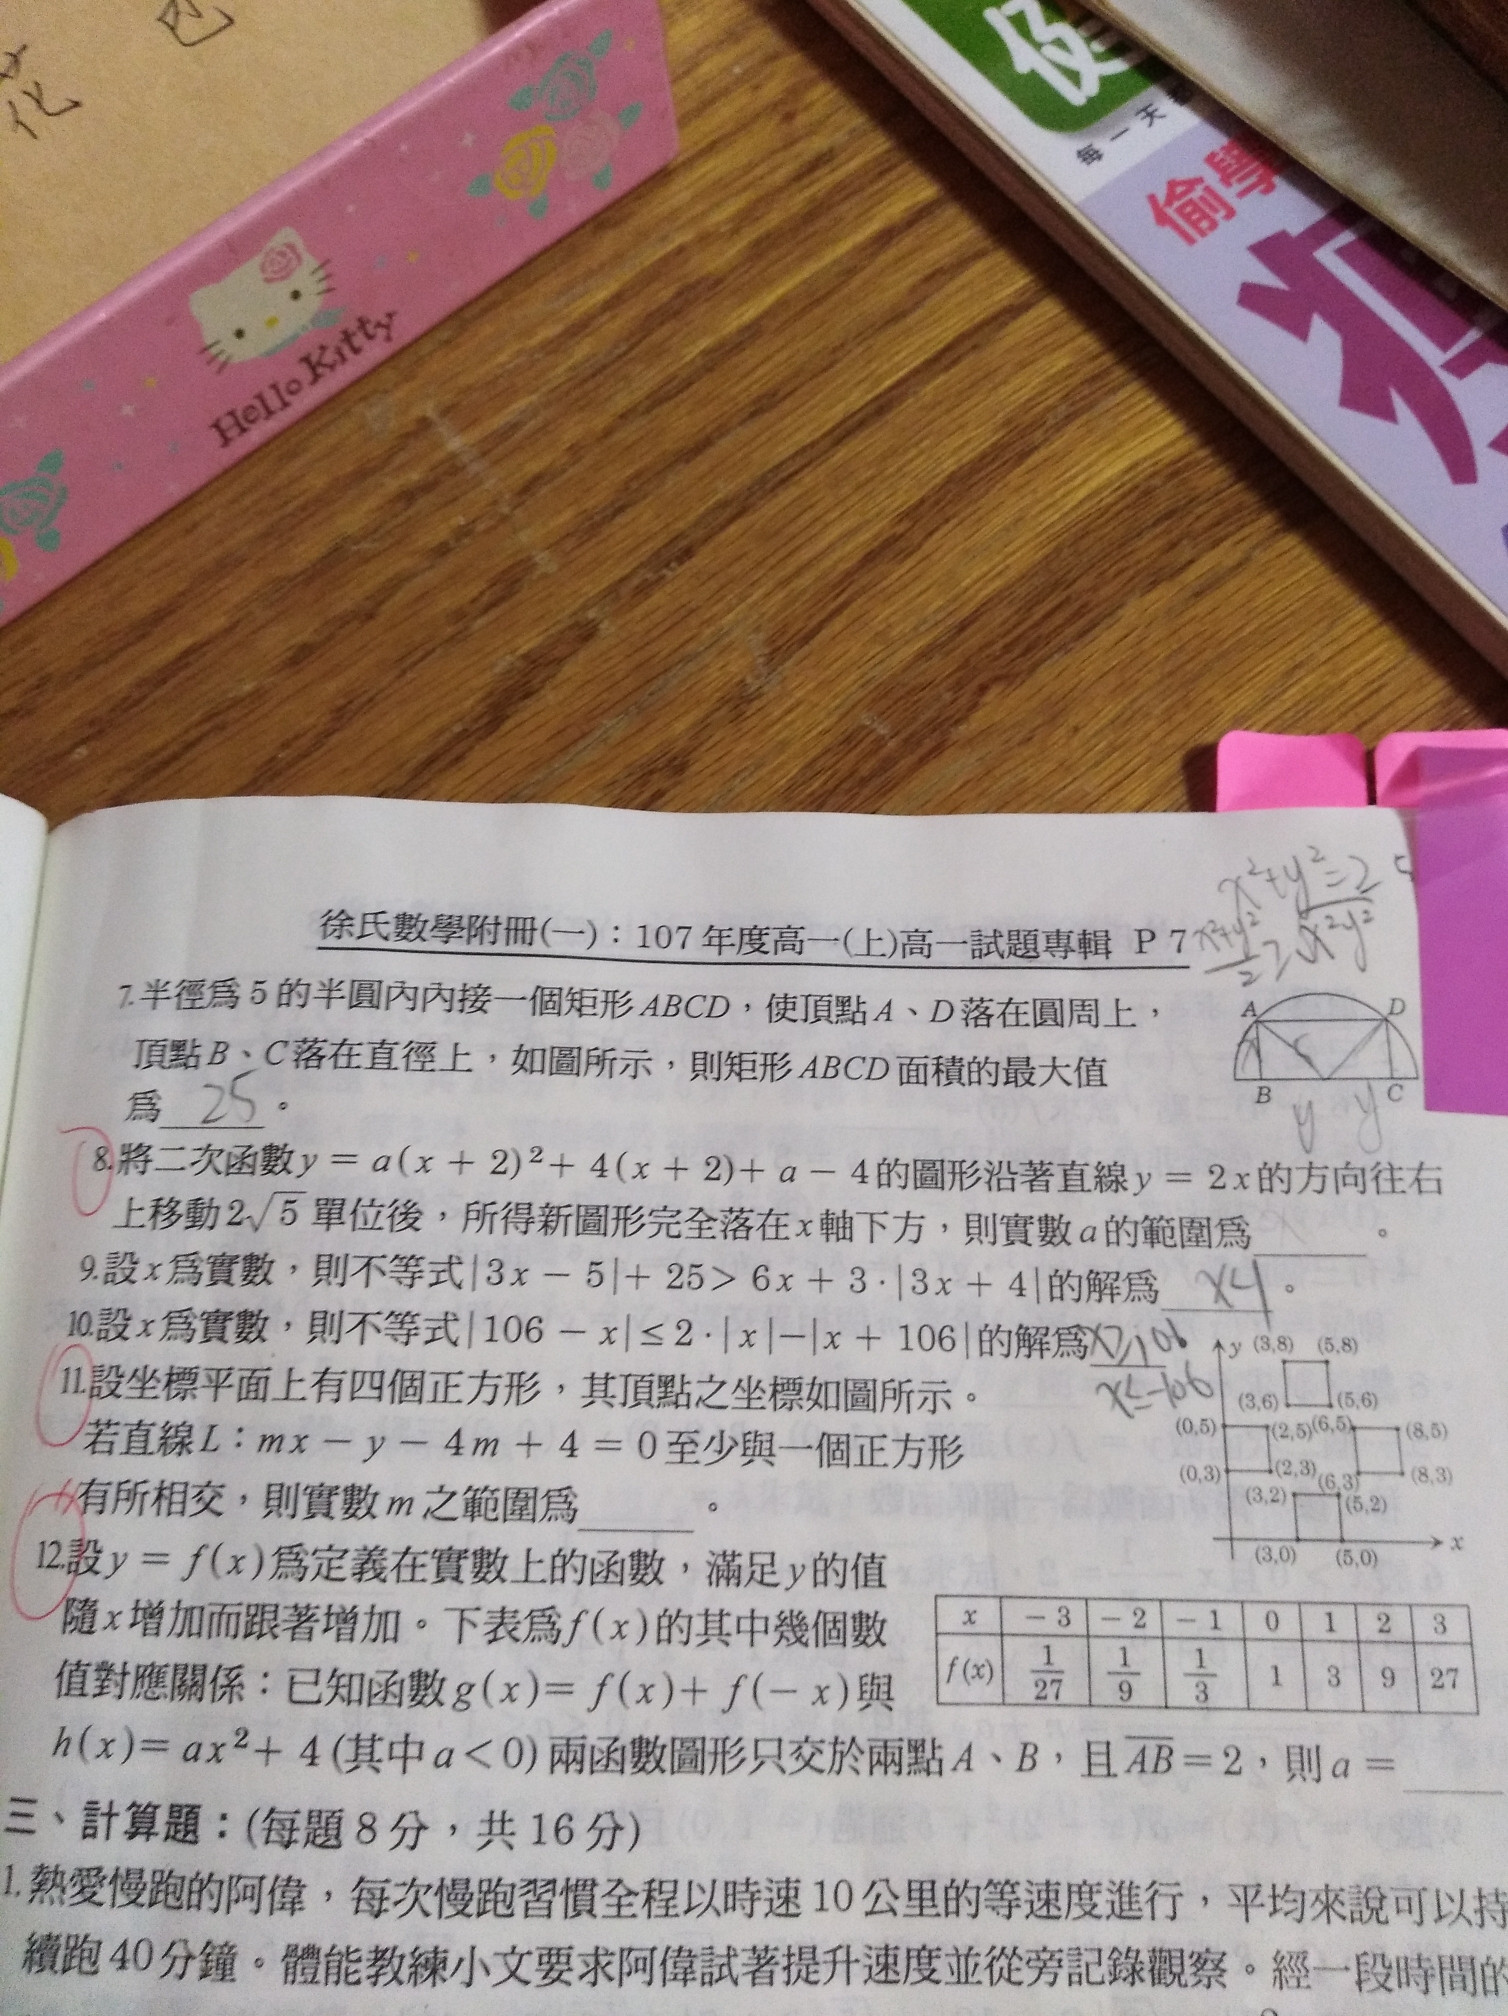 色
花
Hello Kitty
使
每一天都
偷學
徐氏數學附冊(一)：107年度高一(上)高一試題專輯 P 7
x²+y²=25
x²+y²/2 ≥ √x²y²
7.半徑為5的半圓內內接一個矩形ABCD，使頂點A、D落在圓周上，
頂點B、C落在直徑上，如圖所示，則矩形ABCD面積的最大值
為 25 。
A D
x 5
B C
y y
8.將二次函數y = a(x + 2)²+ 4(x + 2)+ a − 4的圖形沿著直線y = 2x的方向往右
上移動2√5單位後，所得新圖形完全落在x軸下方，則實數a的範圍為______。
9.設x為實數，則不等式|3x − 5|+ 25> 6x + 3·|3x + 4|的解為 x<1 。
10.設x為實數，則不等式|106 − x|≤2·|x|−|x + 106|的解為 x≥106
x≤-106
11.設坐標平面上有四個正方形，其頂點之坐標如圖所示。
若直線L：mx − y − 4m + 4 = 0至少與一個正方形
有所相交，則實數m之範圍為______。
y (3,8) (5,8)
(3,6) (5,6)
(0,5) (2,5) (6,5) (8,5)
(0,3) (2,3) (6,3) (8,3)
(3,2) (5,2)
x
(3,0) (5,0)
12.設y = f(x)為定義在實數上的函數，滿足y的值
隨x增加而跟著增加。下表為f(x)的其中幾個數
值對應關係：已知函數g(x)= f(x)+ f(− x)與
h(x)= ax²+ 4(其中a<0)兩函數圖形只交於兩點A、B，且AB=2，則a =______
x −3 −2 −1 0 1 2 3
f(x) 1/27 1/9 1/3 1 3 9 27
三、計算題：(每題8分，共16分)
1.熱愛慢跑的阿偉，每次慢跑習慣全程以時速10公里的等速度進行，平均來說可以持
續跑40分鐘。體能教練小文要求阿偉試著提升速度並從旁記錄觀察。經一段時間的